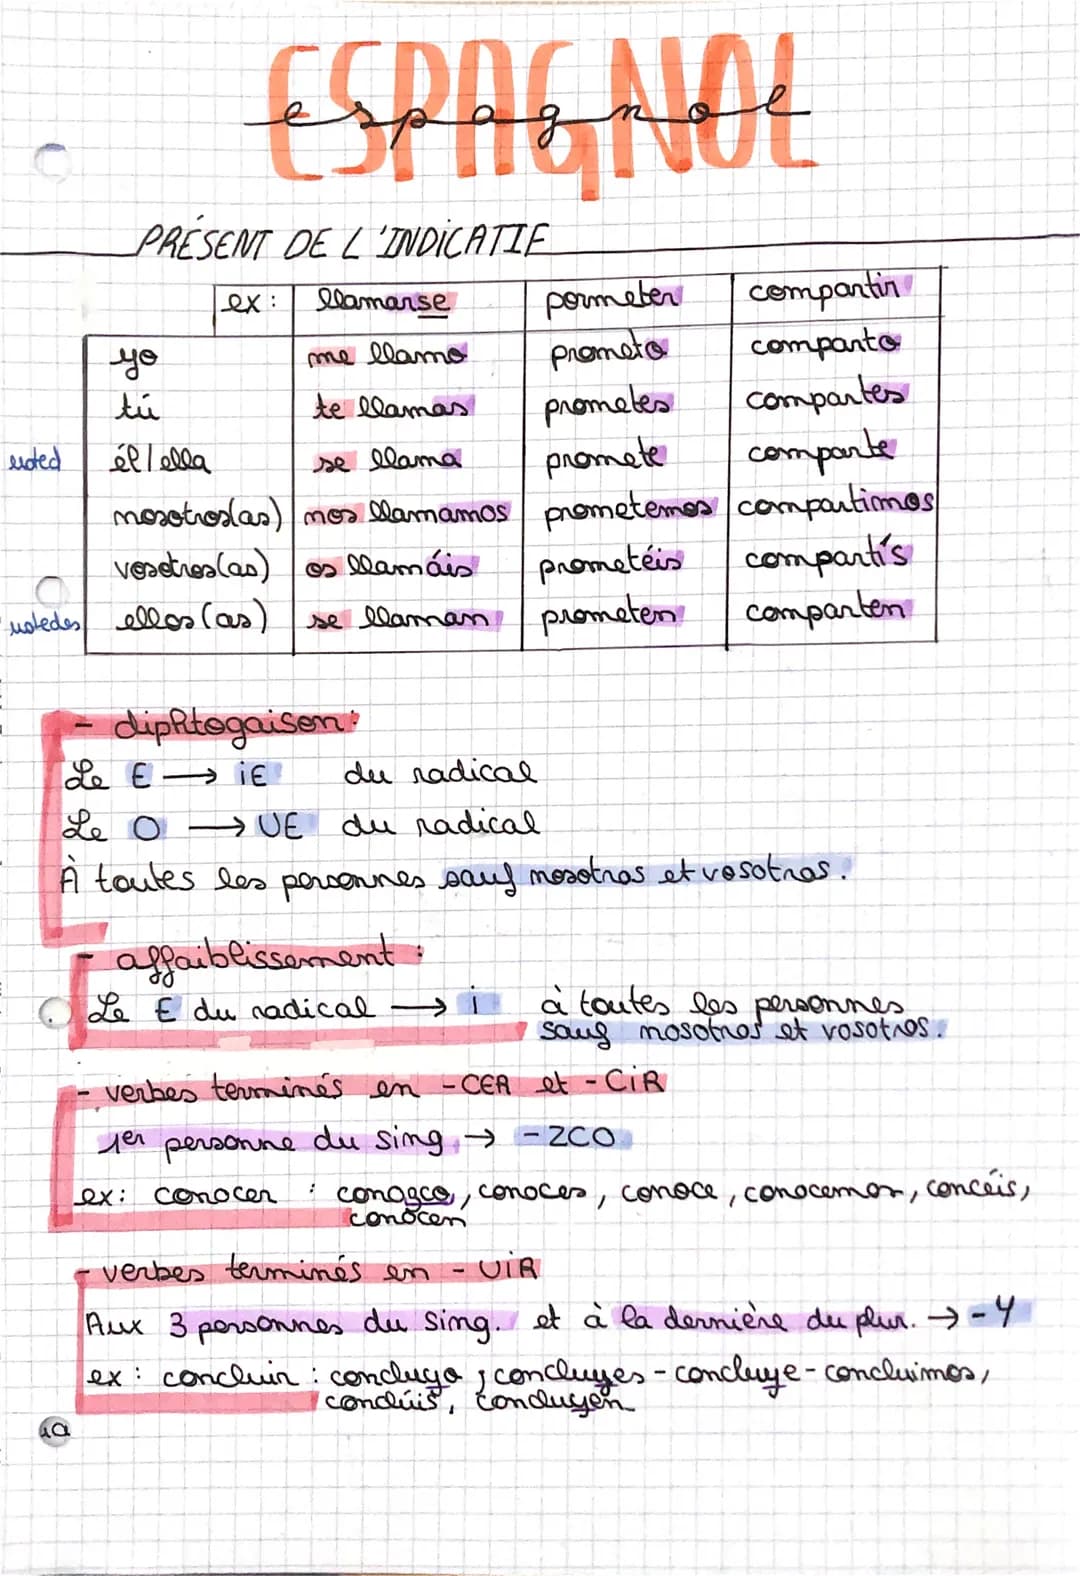 ESPAGNOL
espagnol
PRÉSENT DE L'INDICATIF
ex: llamarse pormeter compartir
yo me llamo prometo comparto
tú te llamas prometes compartes
usted él/ella se llama promete comparte
nosotros(as) nos llamamos prometemos compartimos
vosotros(as) os llamáis prometéis compartís
ustedes ellos (as) se llaman prometen comparten
- diphtogaison:
Le E → iE du radical
Le O → UE du radical
À toutes les personnes sauf nosotros et vosotros.
- affaiblissement :
Le E du radical → i à toutes les personnes
sauf nosotros et vosotros.
- verbes terminés en -CER et -CiR
1er personne du sing. → -ZCO
ex: conocer : conozco, conoces, conoce, conocemos, concéis,
conocen
- verbes terminés en - UiR
Aux 3 personnes du sing. et à la dernière du plur. → -Y
ex : concluir : concluyo ; concluyes - concluye - concluimos,
concluís, concluyen